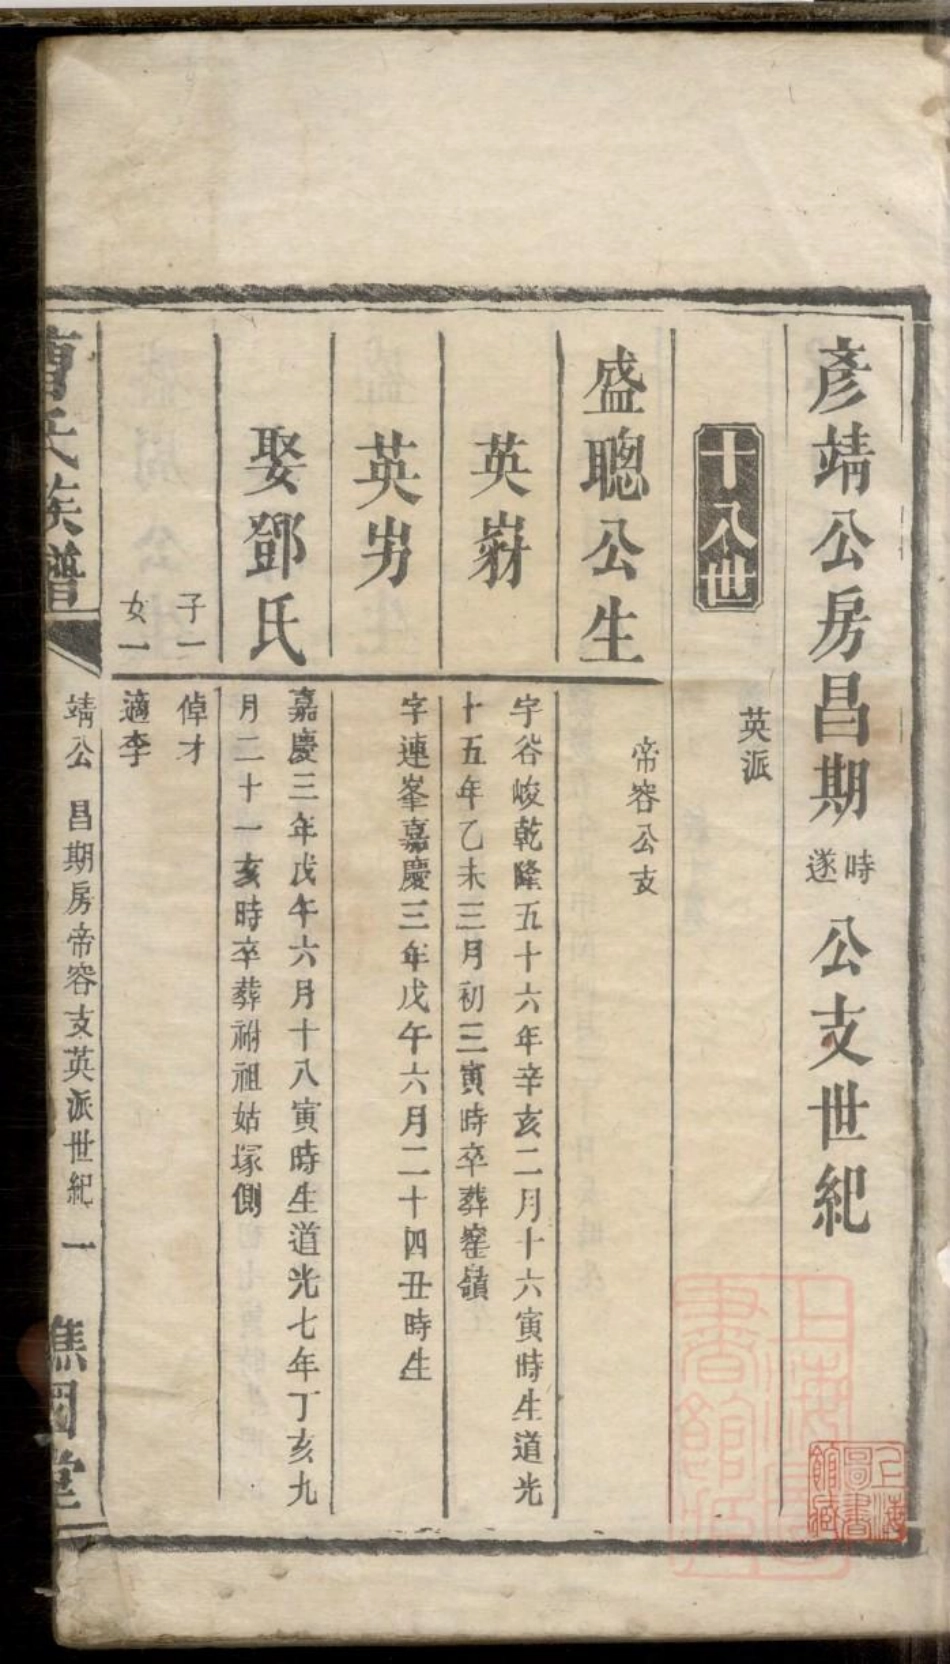 彥靖公房昌期時遂公支世紀
英派
十八世
帝容公支
盛聰公生
英嶎
字谷峻乾隆五十六年辛亥二月十六寅時生道光
十五年乙未三月初三寅時卒葬窰嶺
英屴
字連峯嘉慶三年戊午六月二十四丑時生
娶鄧氏
嘉慶三年戊午六月十八寅時生道光七年丁亥九
月二十一亥時卒葬祔祖姑塚側
子一
倬才
女一
適李
曹氏族譜
靖公 昌期房帝容支英派世紀 一
譙國堂
上海圖書館藏
上海圖書館藏